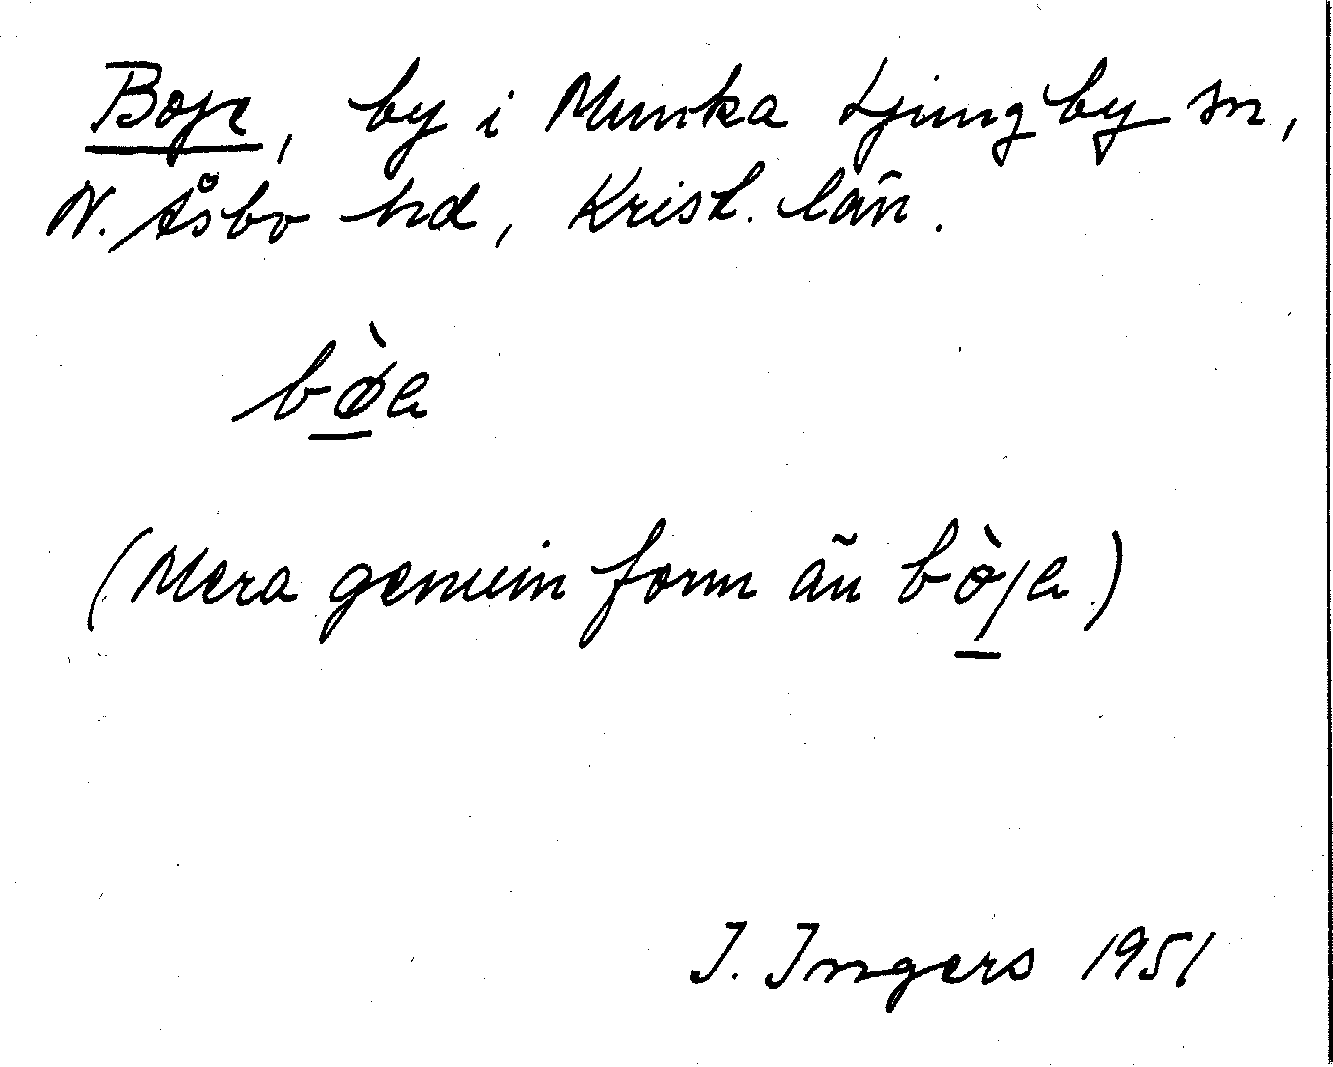 Boje, by i Munka Ljungby sn,
N. Åsbo hd, Krist. län.
bø̀e
(Mera genuin form än bòje)
I. Ingers 1951